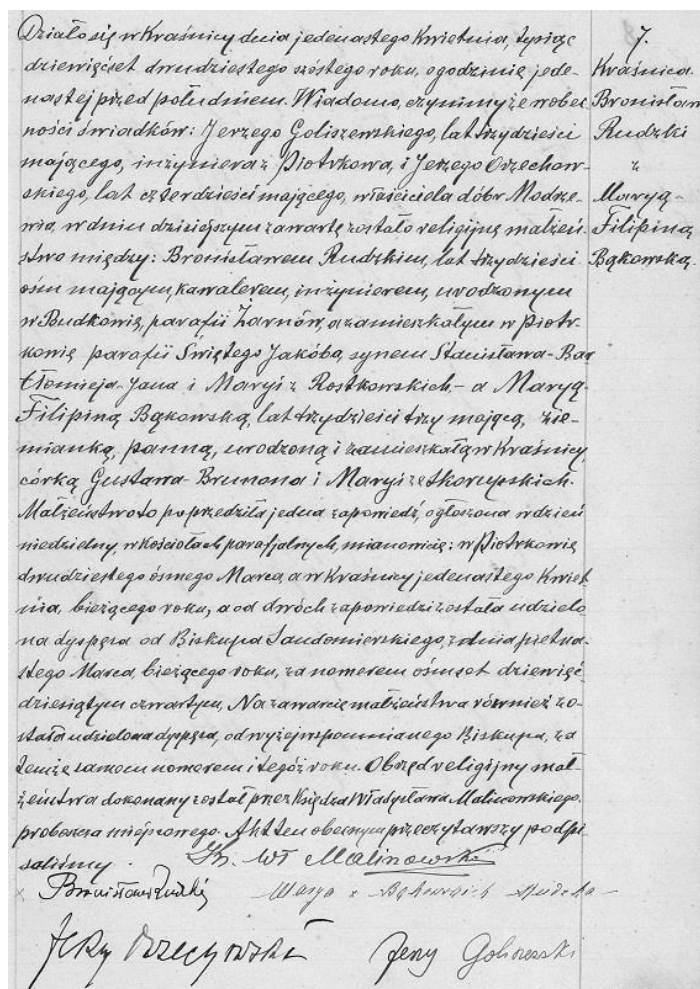 Działo się w Kraśnicy dnia jedenastego Kwietnia, tysiąc
dziewięćset dwudziestego szóstego roku, o godzinie jede-
nastej przed południem. Wiadomo, czynimy że wobec
ności świadków: Jerzego Goliszewskiego, lat trzydzieści
mającego, inżyniera z Piotrkowa, i Jerzego Orzechow-
skiego, lat czterdzieści mającego, właściciela dóbr Modrze-
wie, w dniu dzisiejszym zawarte zostało religijne małżeń-
stwo między: Bronisławem Rudzkim, lat trzydzieści
ośm mającym, kawalerem, inżynierem, urodzonym
w Budkowie, parafii Żarnów, a zamieszkałym w Piotr-
kowie parafii Świętego Jakóba, synem Stanisława-Bar
tłomieja-Jana i Maryi z Rostkowskich,- a Maryą-
Filipiną Bąkowską, lat trzydzieści trzy mającą, zie-
mianką, panną, urodzoną i zamieszkałą w Kraśnicy,
córką Gustawa-Brunona i Maryi ze Skorupskich.
Małżeństwo to poprzedziła jedna zapowiedź, ogłoszona w dzień
niedzielny, w kościołach parafjalnych, mianowicie: w Piotrkowie
dwudziestego ósmego Marca, a w Kraśnicy jedenastego Kwiet
nia, bieżącego roku, a od dwóch zapowiedzi została udzielo
na dyspęsa od Biskupa Sandomierskiego, z dnia piętna-
stego Marca, bieżącego roku, za nomerem ośmset dziewięć-
dziesiątym czwartym, Na zawarcie małżeństwa również zo-
stała udzielona dyspęsa, od wyżej wspomnianego Biskupa, za
temże samem nomerem i tegóż roku. Obrzęd religijny mał-
żeństwa dokonany został przez Księdza Władysława Malinowskiego,
proboszcza miejscowego. Akt ten obecnym przeczytawszy podpi
saliśmy.
Ks. Wł Malinowski
Bronisław Rudzki Marya z Bąkowskich Rudzka
Jerzy Orzechowski Jerzy Goliszewski
7.
Kraśnica.
Bronisław
Rudzki
z
Maryą-
Filipiną
Bąkowską.